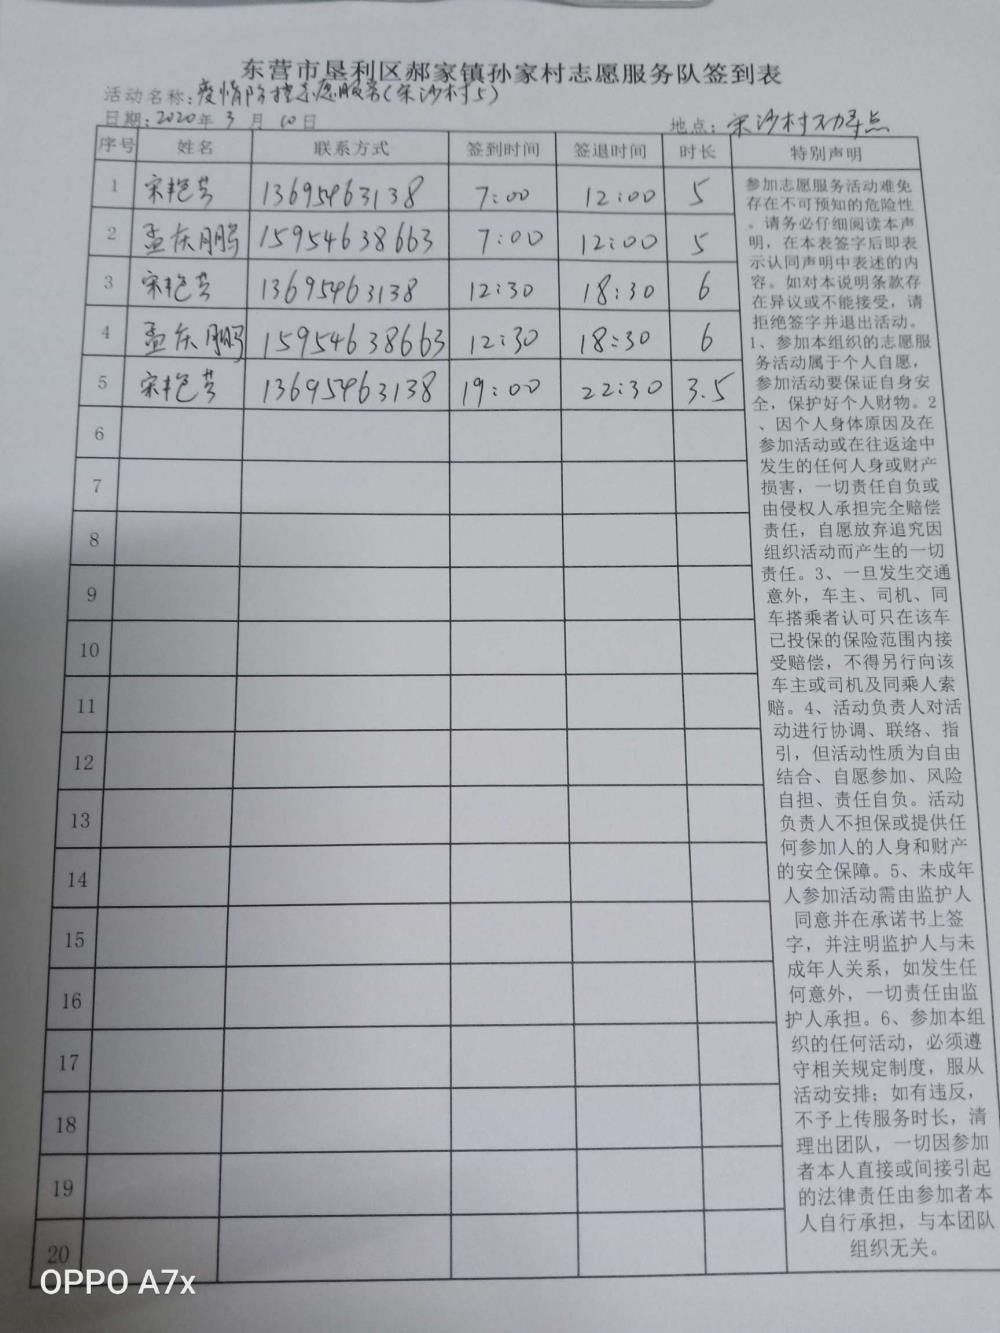 东营市垦利区郝家镇孙家村志愿服务队签到表
活动名称:疫情防控志愿服务(宋沙村5)
日期:2020年3月10日 地点:宋沙村劝导点
序号 姓名 联系方式 签到时间 签退时间 时长 特别声明
1 宋艳芳 13695463138 7:00 12:00 5
2 孟庆鹏 15954638663 7:00 12:00 5
3 宋艳芳 13695463138 12:30 18:30 6
4 孟庆鹏 15954638663 12:30 18:30 6
5 宋艳芳 13695463138 19:00 22:30 3.5
6
7
8
9
10
11
12
13
14
15
16
17
18
19
20
参加志愿服务活动难免
存在不可预知的危险性
。请务必仔细阅读本声
明，在本表签字后即表
示认同声明中表述的内
容。如对本说明条款存
在异议或不能接受，请
拒绝签字并退出活动。
1、参加本组织的志愿服
务活动属于个人自愿，
参加活动要保证自身安
全，保护好个人财物。2
、因个人身体原因及在
参加活动或在往返途中
发生的任何人身或财产
损害，一切责任自负或
由侵权人承担完全赔偿
责任，自愿放弃追究因
组织活动而产生的一切
责任。3、一旦发生交通
意外，车主、司机、同
车搭乘者认可只在该车
已投保的保险范围内接
受赔偿，不得另行向该
车主或司机及同乘人索
赔。4、活动负责人对活
动进行协调、联络、指
引，但活动性质为自由
结合、自愿参加、风险
自担、责任自负。活动
负责人不担保或提供任
何参加人的人身和财产
的安全保障。5、未成年
人参加活动需由监护人
同意并在承诺书上签
字，并注明监护人与未
成年人关系，如发生任
何意外，一切责任由监
护人承担。6、参加本组
织的任何活动，必须遵
守相关规定制度，服从
活动安排；如有违反，
不予上传服务时长，清
理出团队，一切因参加
者本人直接或间接引起
的法律责任由参加者本
人自行承担，与本团队
组织无关。
OPPO A7x